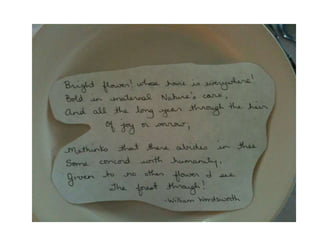 Bright flower! whose home is everywhere!
Bold in maternal Nature's care,
And all the long year through the heir
Of joy or sorrow,
Methinks that there abides in thee
Some concord with humanity,
Given to no other flower I see
The forest through!
-William Wordsworth